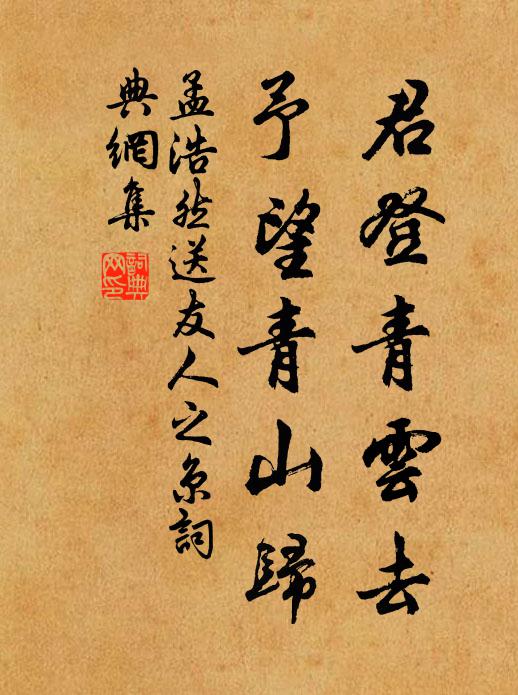 君登青雲去
予望青山歸
孟浩然送友人之京詞
典網集
詞典
網印